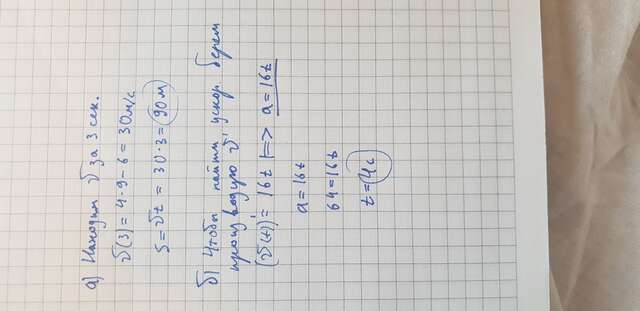 а) Находим v за 3 сек.
v(3) = 4·9-6 = 30 м/с
S = vt = 30·3 = 90 м
б) Чтобы найти ускор берем
производную v'
(v(t))' = 16t |=> a = 16t
a = 16t
64 = 16t
t = 4с